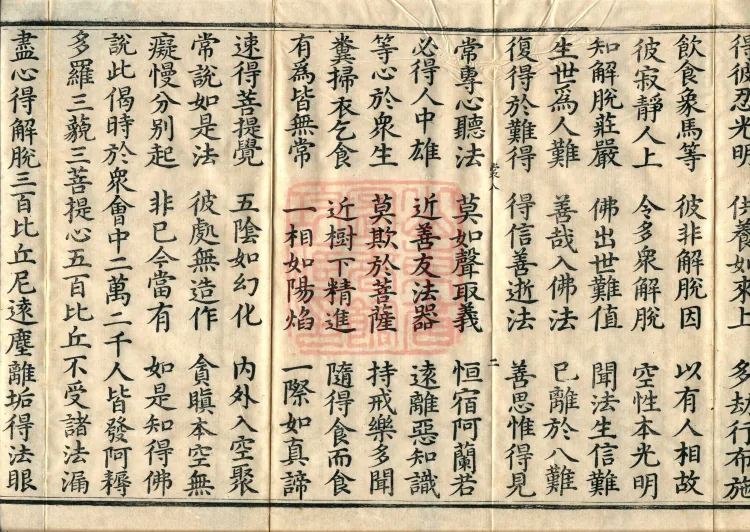 得彼忍光明 供養如來上 多劫行布施
飲食象馬等 彼非解脫因 以有人相故
彼寂靜人上 令多衆解脫 空性本光明
知解脫莊嚴 佛出世難值 聞法生信難
生世爲人難 善哉入佛法 已離於八難
復得於難得 得信善逝法 善思惟得見
常專心聽法 莫如聲取義 恒宿阿蘭若
必得人中雄 近善友法器 遠離惡知識
等心於衆生 莫欺於菩薩 持戒樂多聞
糞掃衣乞食 近樹下精進 隨得食而食
有爲皆無常 一相如陽焰 一際如真諦
速得菩提覺 五陰如幻化 內外入空聚
常說如是法 彼處無造作 貪瞋本空無
癡慢分別起 非已今當有 如是知得佛
說此偈時於衆會中二萬二千人皆發阿耨
多羅三藐三菩提心五百比丘不受諸法漏
盡心得解脫三百比丘尼遠塵離垢得法眼